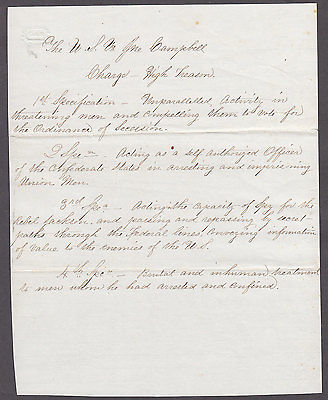 The U S V Jno Campbell
Charge - High Treason.
1st Specification - Unparalleled Activity in
threatening men and compelling them to vote for
the Ordinance of Secession.
2 Spcn - Acting as a self authorized Officer
of the Confederate States in arresting and imprisoning
Union Men.
3rd Spcn - Acting in the Capacity of Spy for the
Rebel faction and passing and repassing by secret
paths through the Federal lines, conveying information
of value to the enemies of the U.S.
4th Spcn - Brutal and inhuman treatment
to men whom he had arrested and confined.